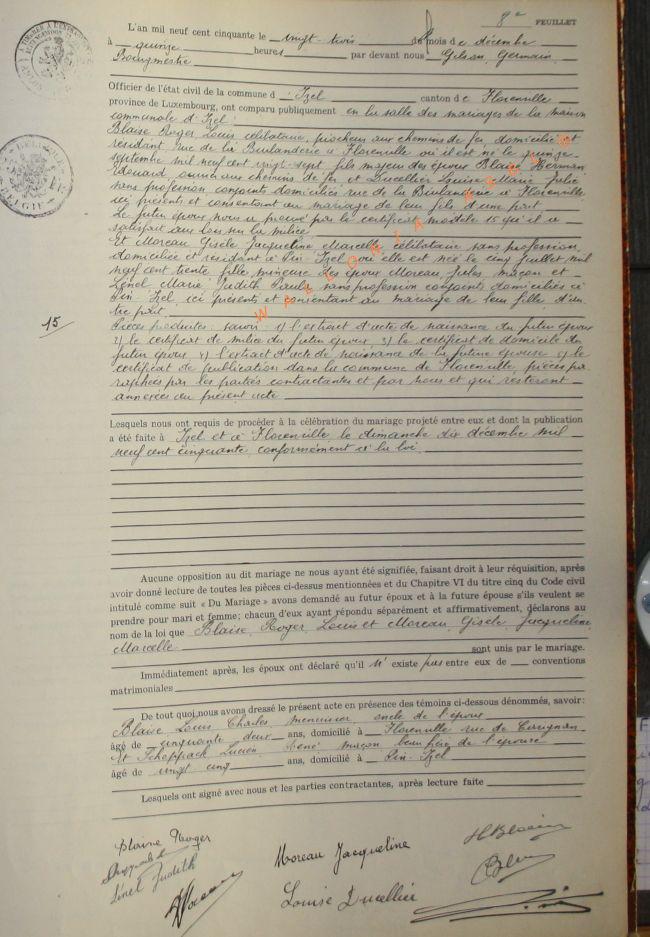 8e FEUILLET
L'an mil neuf cent cinquante le vingt-trois du mois de décembre
à quinze heures par devant nous Gilson Germain
Bourgmestre
Officier de l'état civil de la commune d'Izel canton de Florenville
province de Luxembourg, ont comparu publiquement en la salle des mariages de la maison
communale d'Izel:
Blaise Roger Louis célibataire, piocheur aux chemins de fer, domicilié et
résidant rue de la Boulanderie à Florenville où il est né le quinze
septembre mil neuf cent vingt-sept, fils majeur des époux Blaise Herman
Edouard, ouvrier aux chemins de fer, et Ducellier Louise Marie Julie
sans profession conjoints domiciliés rue de la Boulanderie à Florenville
ici présents et consentant au mariage de leur fils d'une part
Le futur époux nous a prouvé par le certificat modèle 15 qu'il a
satisfait aux lois sur la milice
Et Moreau Gisèle Jacqueline Marcelle célibataire sans profession,
domiciliée et résidant à Pin Izel où elle est née le cinq juillet mil
neuf cent trente, fille mineure des époux Moreau Jules, maçon et
Linel Marie Judith Paula sans profession conjoints domiciliés à
Pin-Izel ici présents et consentant au mariage de leur fille d'au
tre part
WALLONIA
15
Pièces produites: savoir: 1) l'extract d'acte de naissance du futur époux
2) le certificat de milice du futur époux 3) le certificat de domicile du
futur époux 4) l'extract d'acte de naissance de la future épouse 5) le
certificat de publication dans la commune de Florenville, pièces pa-
raphées par les parties contractantes et par nous et qui resteront
annexées au présent acte
Lesquels nous ont requis de procéder à la célébration du mariage projeté entre eux et dont la publication
a été faite à Izel et à Florenville le dimanche dix décembre mil
neuf cent cinquante conformément à la loi
Aucune opposition au dit mariage ne nous ayant été signifiée, faisant droit à leur réquisition, après
avoir donné lecture de toutes les pièces ci-dessus mentionnées et du Chapitre VI du titre cinq du Code civil
intitulé comme suit « Du Mariage » avons demandé au futur époux et à la future épouse s'ils veulent se
prendre pour mari et femme; chacun d'eux ayant répondu séparément et affirmativement, déclarons au
nom de la loi que Blaise, Roger, Louis et Moreau Gisèle Jacqueline
Marcelle sont unis par le mariage.
Immédiatement après, les époux ont déclaré qu'il n'existe pas entre eux de conventions
matrimoniales
De tout quoi nous avons dressé le présent acte en présence des témoins ci-dessous dénommés, savoir:
Blaise Louis Charles menuisier, oncle de l'époux
âgé de cinquante deux ans, domicilié à Florenville rue de Carignan
Et Scheppach Lucien, René maçon beau frère de l'épouse
âgé de vingt cinq ans, domicilié à Pin-Izel
Lesquels ont signé avec nous et les parties contractantes, après lecture faite
Blaise Roger
Moreau Jacqueline
Linel Judith
Louise Ducellier